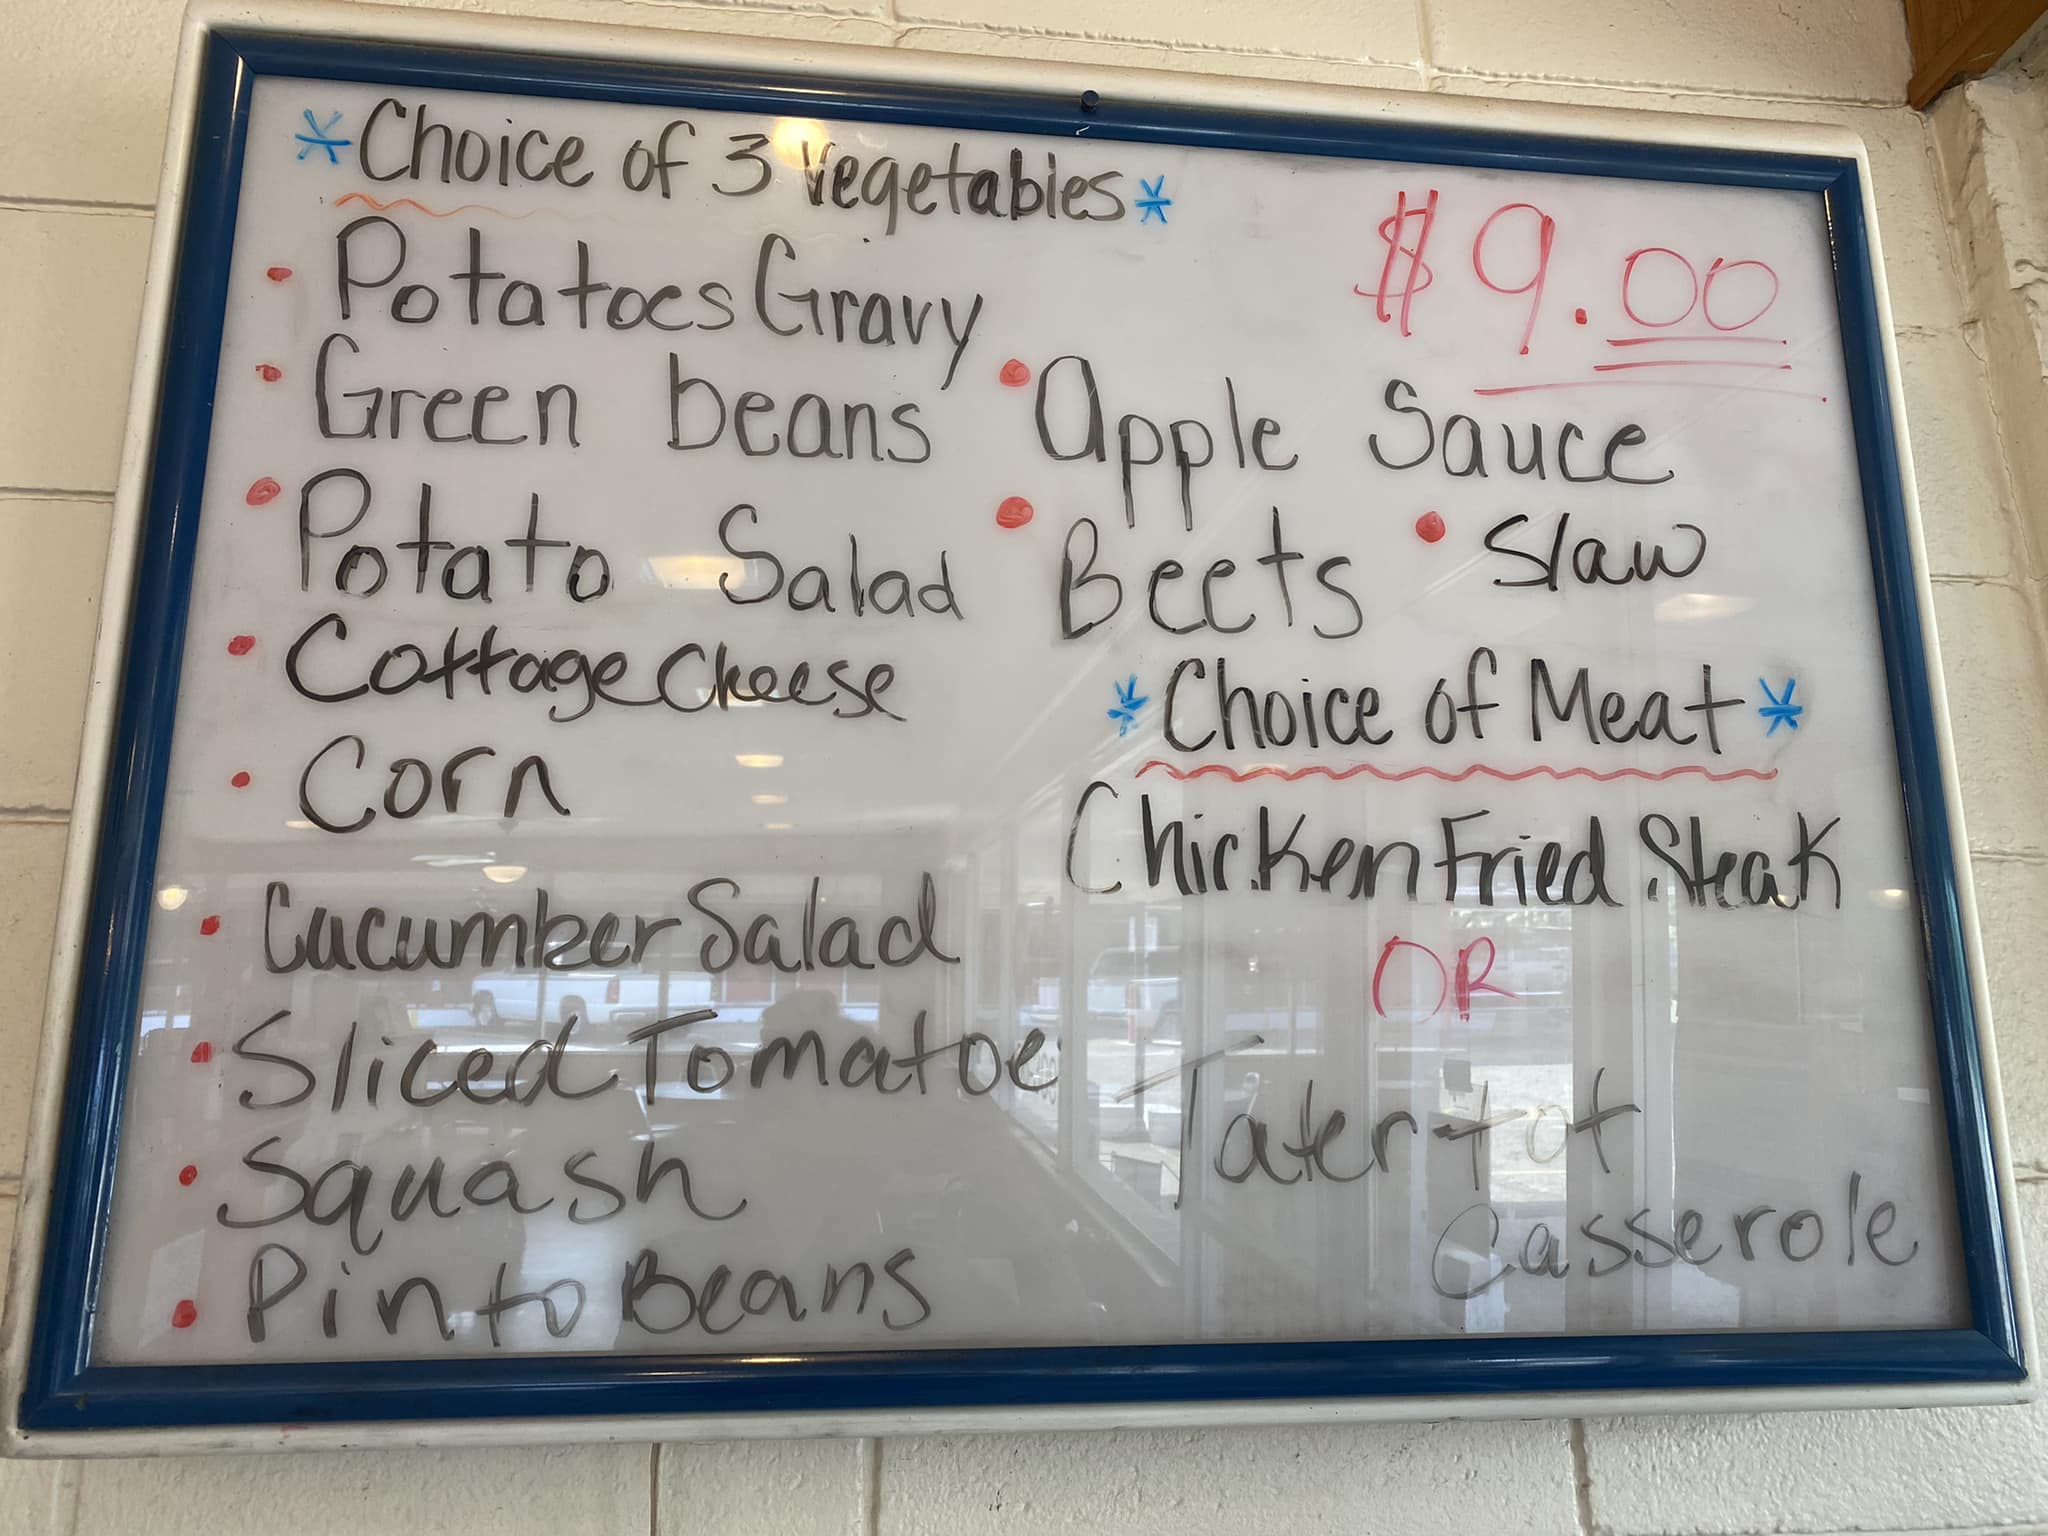 *Choice of 3 Vegetables*
$9.00
• Potatoes Gravy
• Green beans
• Potato Salad
• Cottage Cheese
• Corn
• Cucumber Salad
• Sliced Tomatoe
• Squash
• Pinto Beans
• Apple Sauce
• Beets • Slaw
*Choice of Meat*
Chicken Fried Steak
OR
Tater tot
Casserole